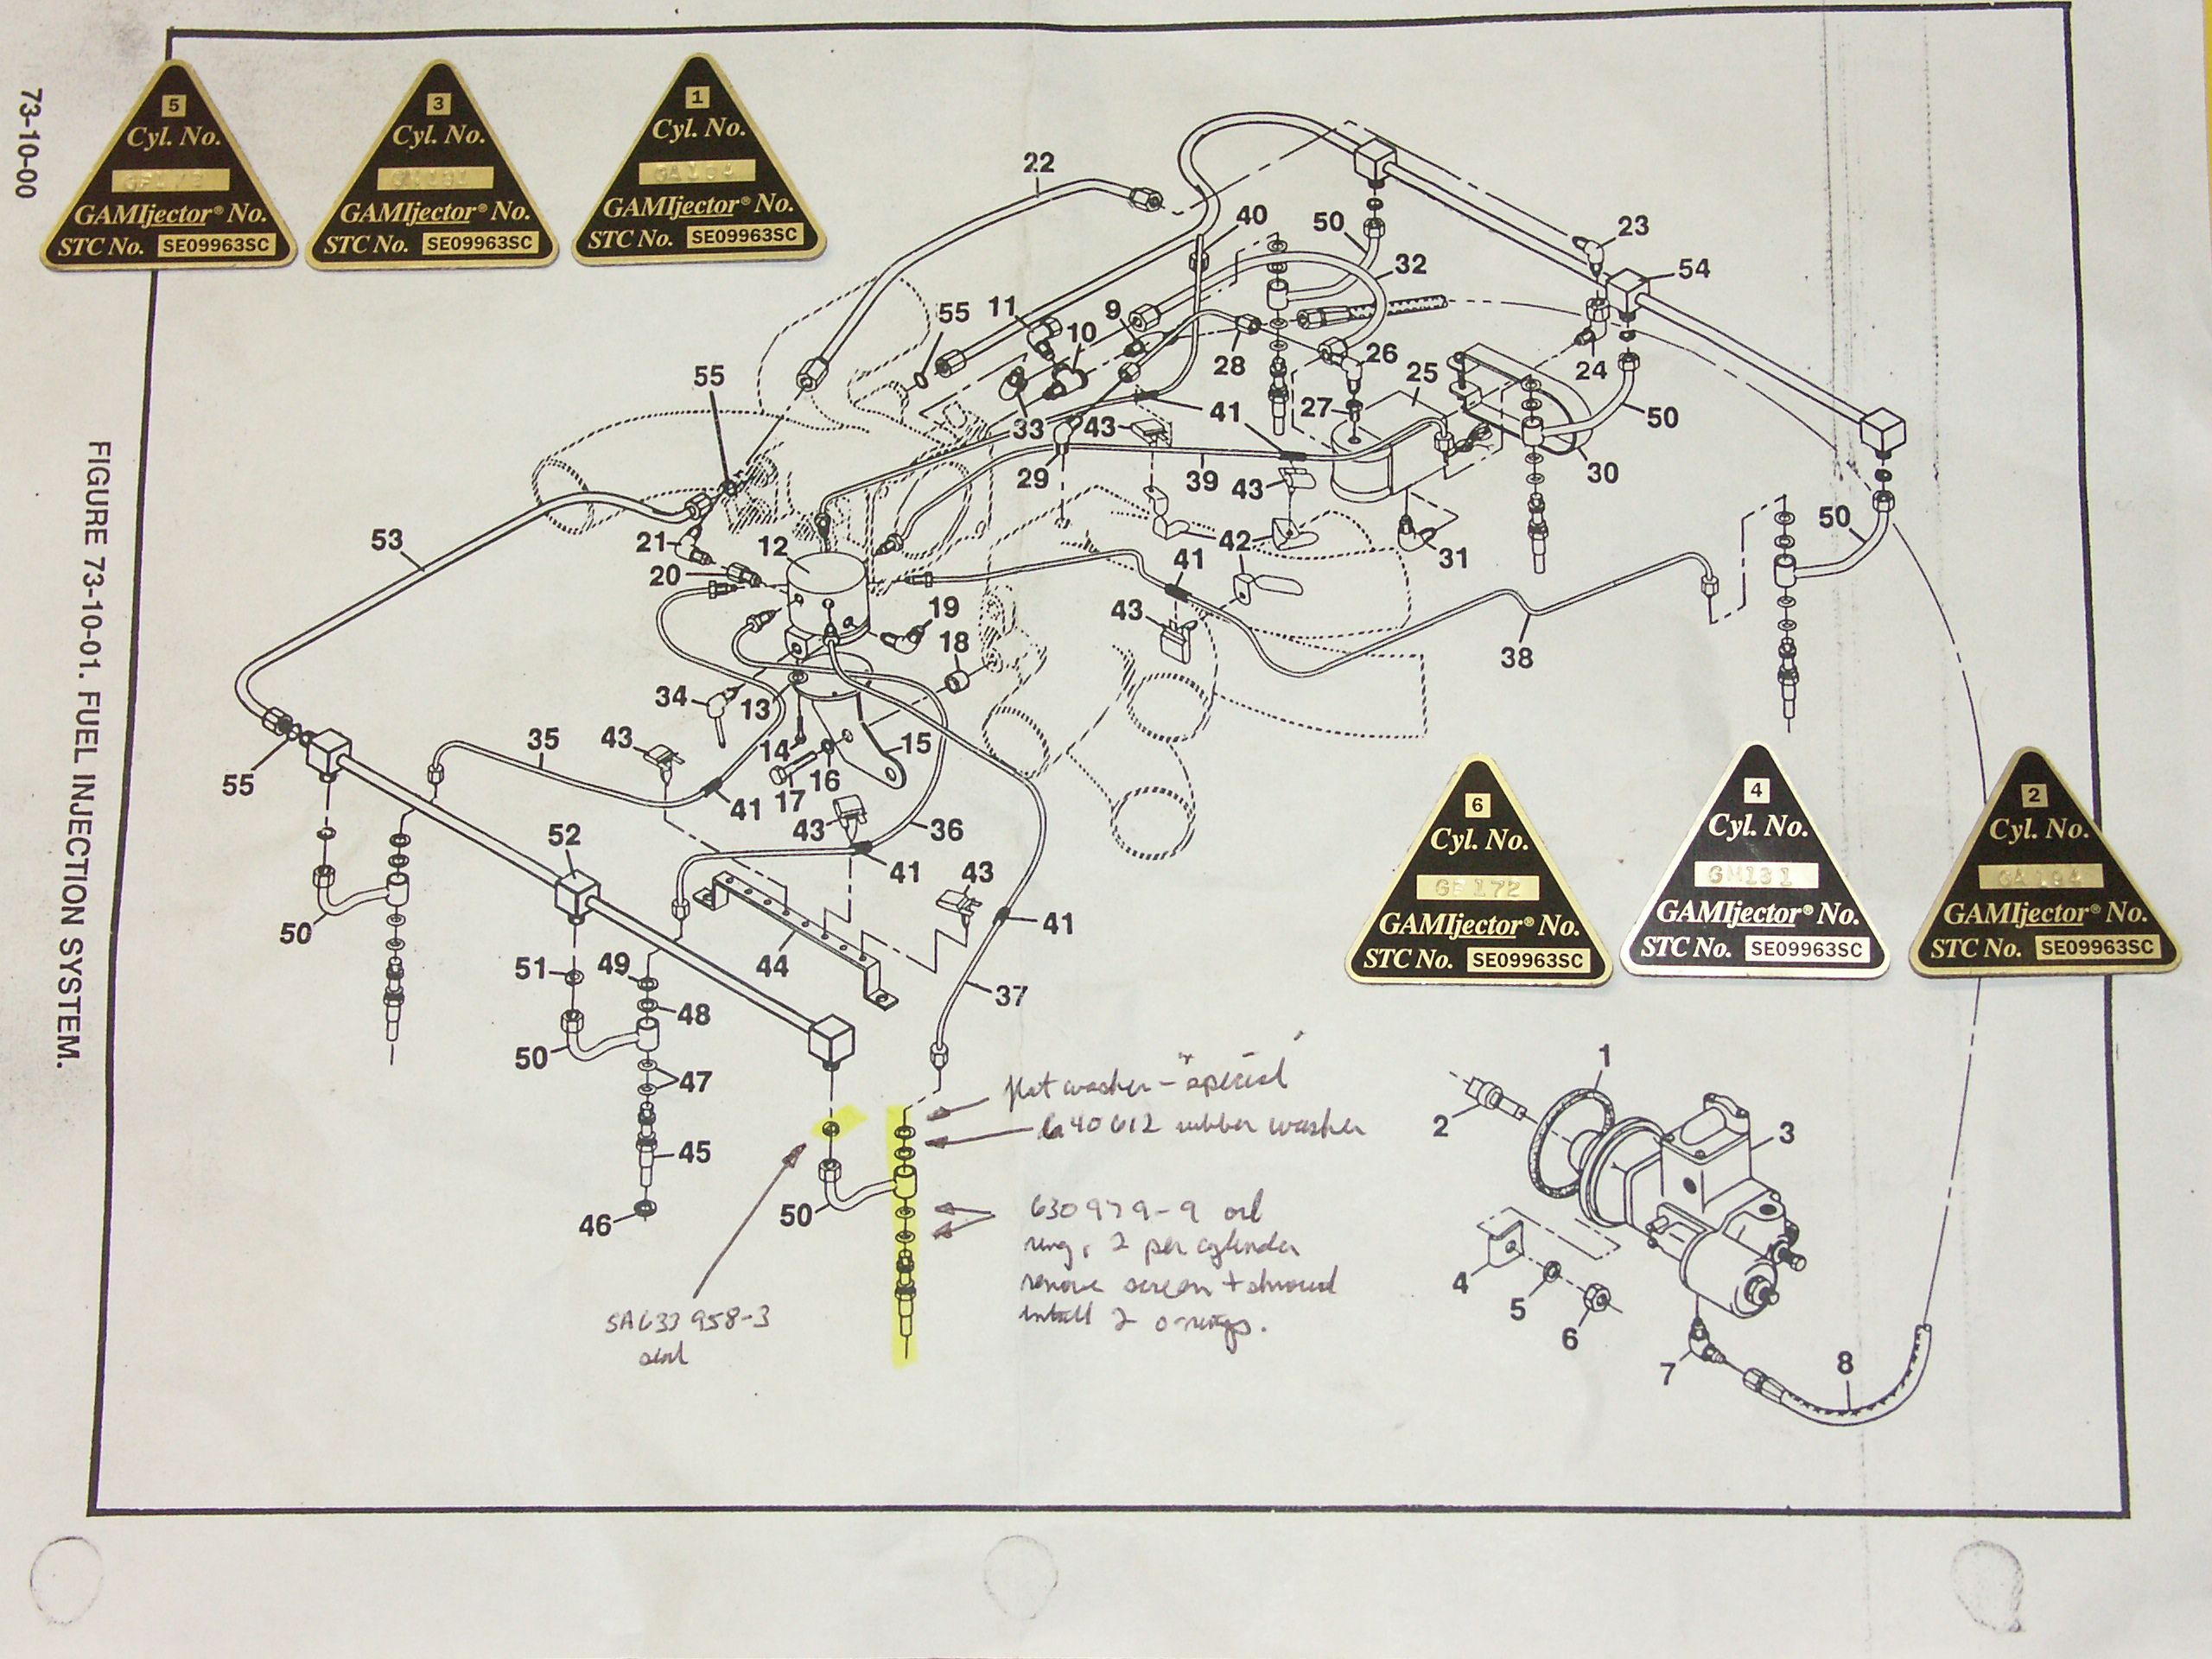 73-10-00
FIGURE 73-10-01. FUEL INJECTION SYSTEM.
5
Cyl. No.
GAMIjector® No.
STC No. SE09963SC
3
Cyl. No.
GAMIjector® No.
STC No. SE09963SC
1
Cyl. No.
GA104
GAMIjector® No.
STC No. SE09963SC
22
40
50
32
23
54
55
11
10
9
28
26
25
24
50
55
33
43
41
27
29
39
43
30
53
21
12
20
42
41
31
50
19
18
43
38
34
13
14
15
16
17
35
43
55
41
43
36
52
41
43
50
41
44
51
49
48
37
50
47
45
46
50
6
Cyl. No.
GF172
GAMIjector® No.
STC No. SE09963SC
4
Cyl. No.
GH131
GAMIjector® No.
STC No. SE09963SC
2
Cyl. No.
GA104
GAMIjector® No.
STC No. SE09963SC
flat washer - "special"
640612 rubber washer
630979-9 oil
ring, 2 per cylinder
remove screen + shroud
install 2 o-rings.
SA633958-3
seal
1
2
3
4
5
6
7
8